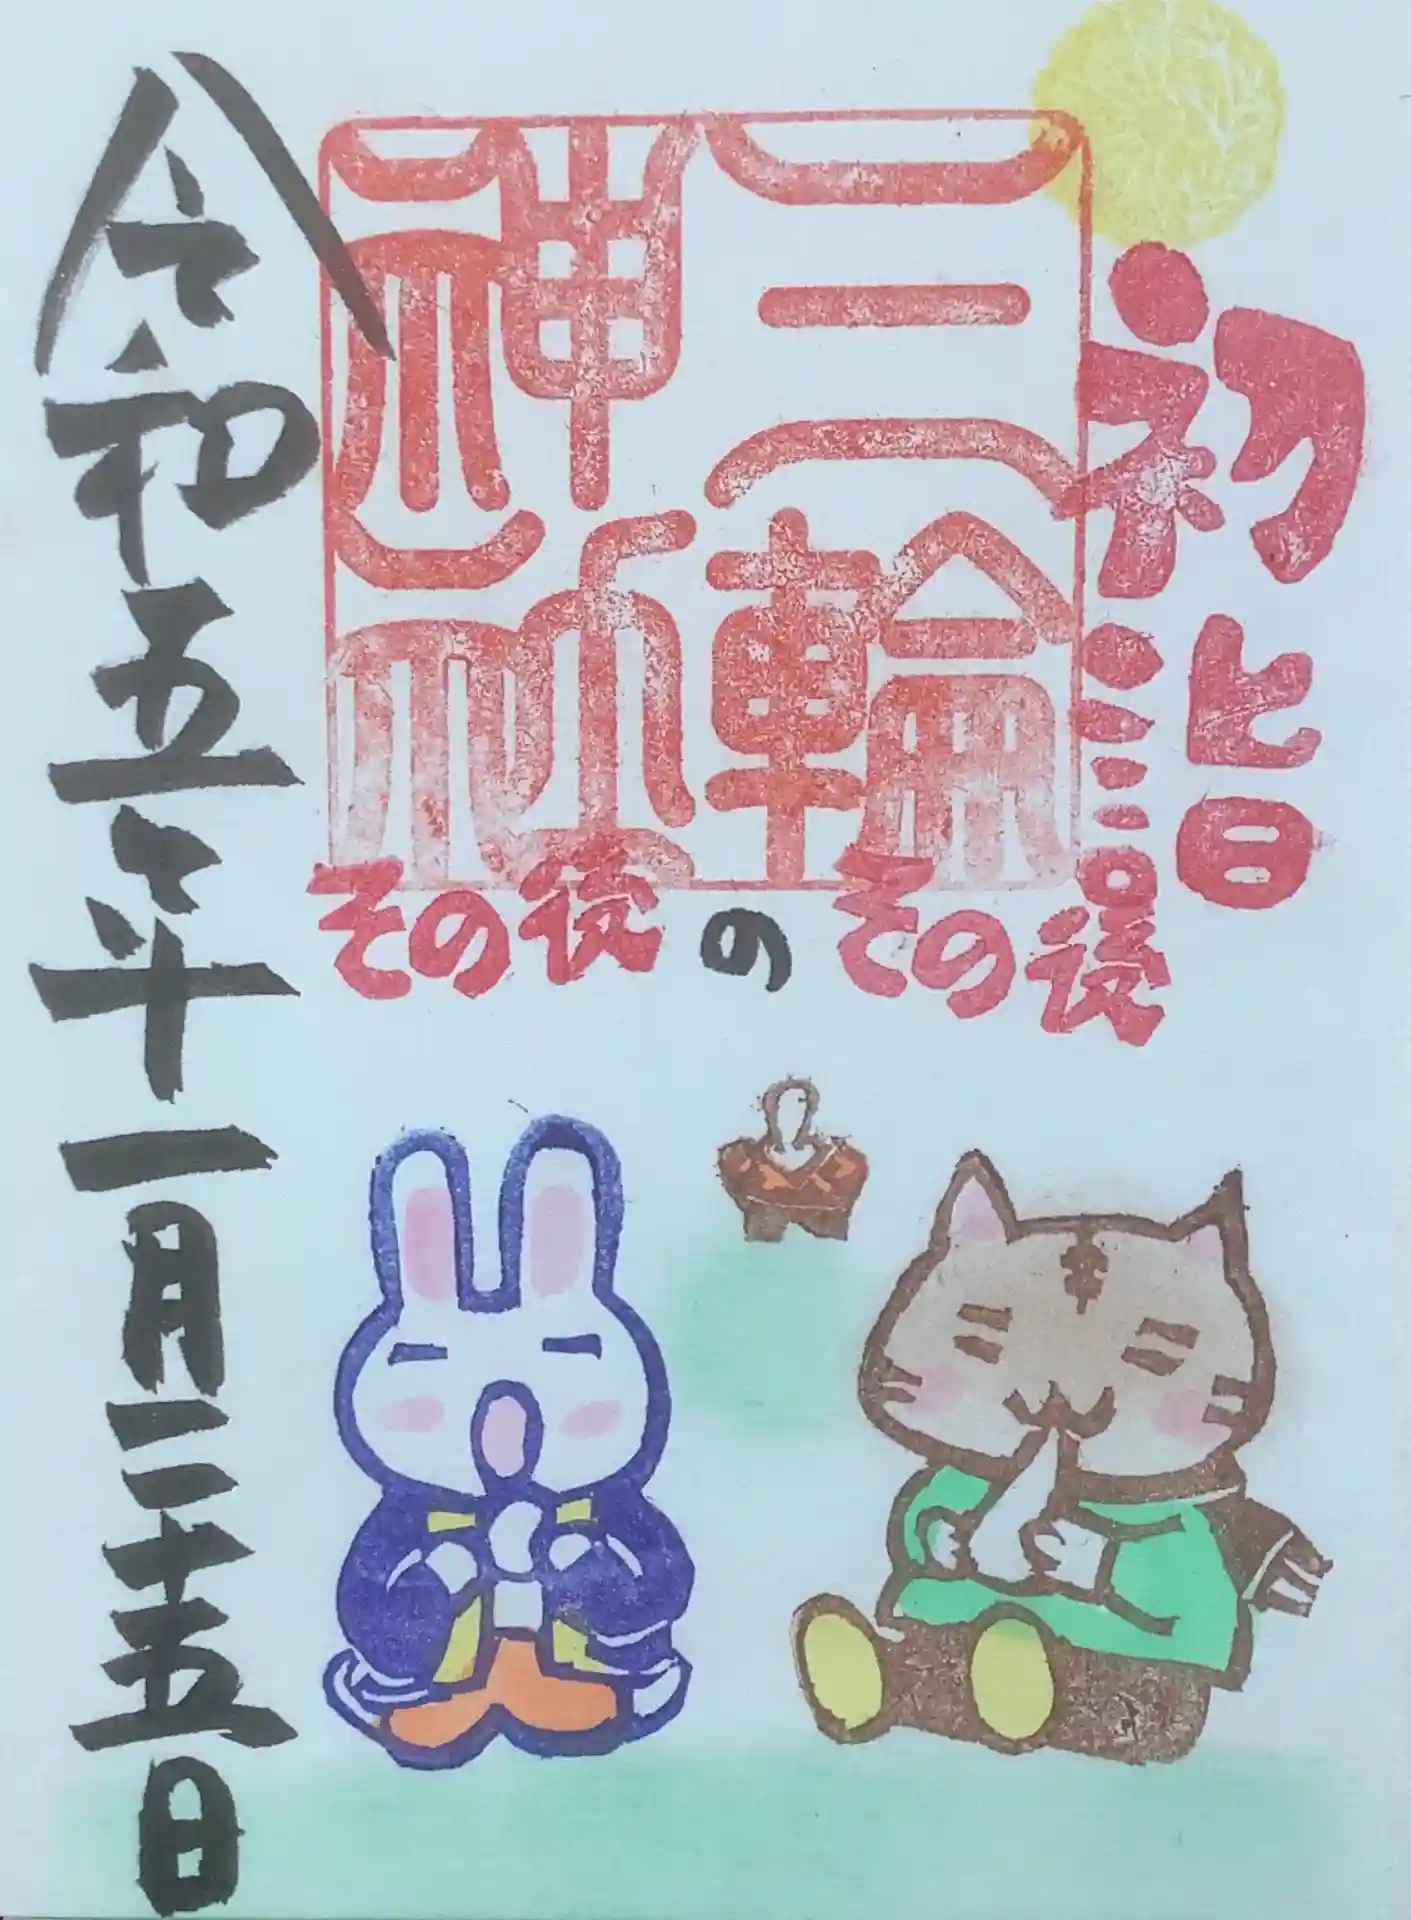 初詣
三輪
神社
その後のその後
令和五年一月二十五日